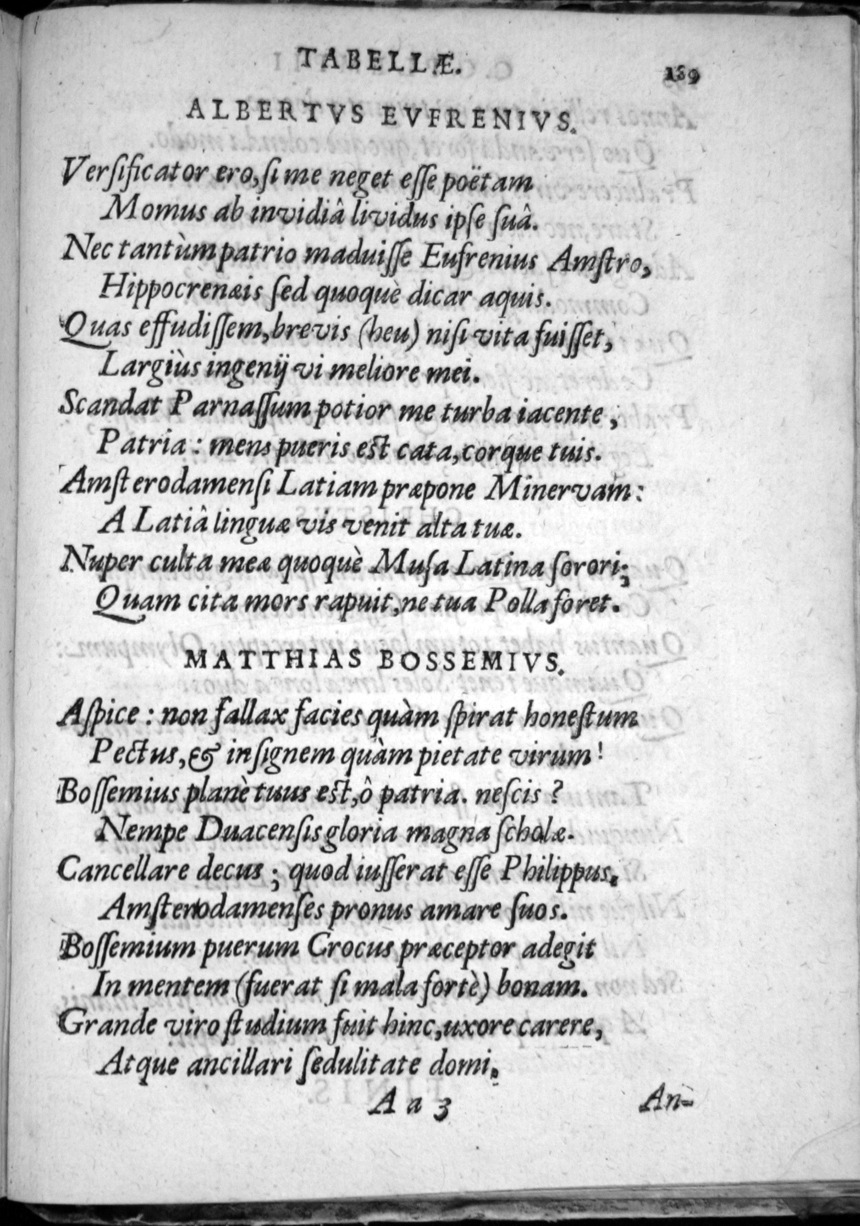 TABELLÆ. 189
ALBERTVS EVFRENIVS.
Versificator ero, si me neget esse poëtam
Momus ab invidiâ lividus ipse suâ.
Nec tantùm patrio maduisse Eufrenius Amstro,
Hippocrenæis sed quoquè dicar aquis.
Quas effudissem, brevis (heu) nisi vita fuisset,
Largiùs ingenij vi meliore mei.
Scandat Parnassum potior me turba iacente,
Patria: mens pueris est cata, corque tuis.
Amsterodamensi Latiam præpone Minervam:
A Latiâ linguæ vis venit alta tuæ.
Nuper culta meæ quoquè Musa Latina sorori;
Quam cita mors rapuit, ne tua Polla foret.
MATTHIAS BOSSEMIVS.
Aspice: non fallax facies quàm spirat honestum
Pectus, & insignem quàm pietate virum!
Bossemius planè tuus est, ô patria. nescis?
Nempe Duacensis gloria magna scholæ.
Cancellare decus; quod iusserat esse Philippus,
Amsterodamenses pronus amare suos.
Bossemium puerum Crocus præceptor adegit
In mentem (fuerat si mala fortè) bonam.
Grande viro studium fuit hinc, uxore carere,
Atque ancillari sedulitate domi.
A a 3 An-